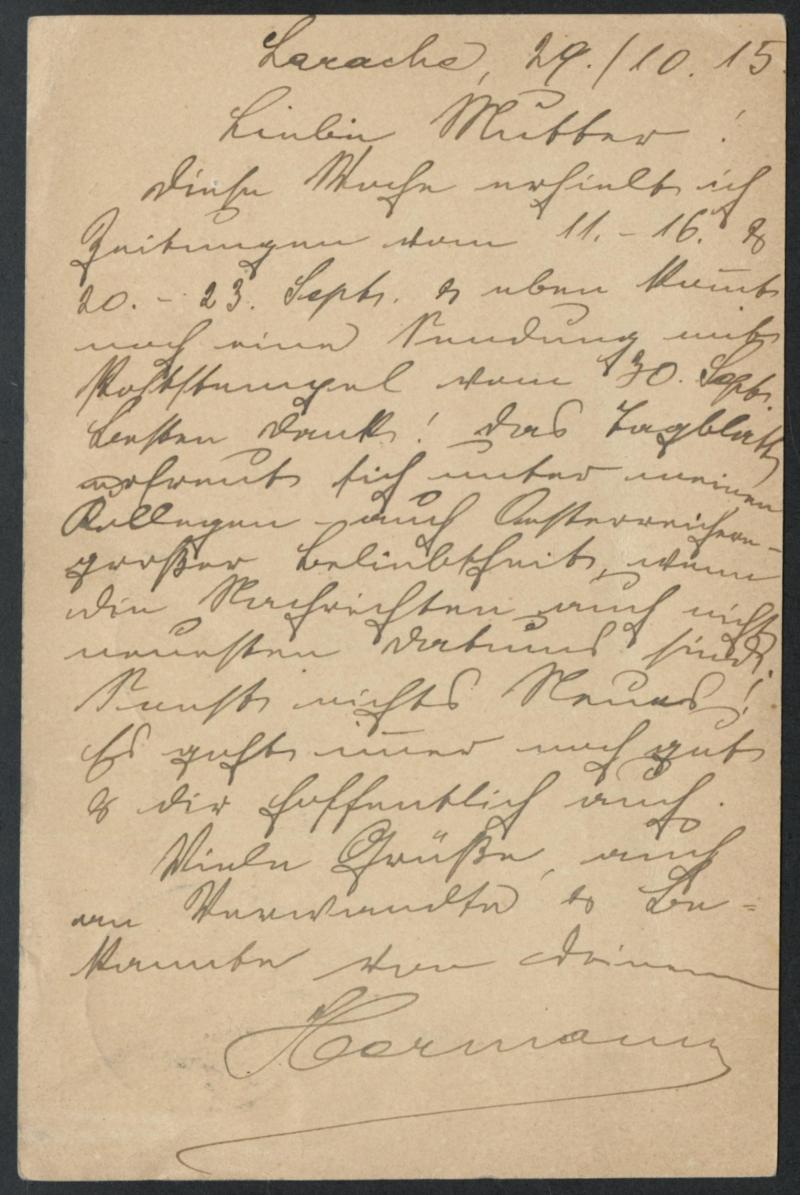 Larache, 29./10. 15.
Liebe Mutter!
Diese Woche erhielt ich
Zeitungen vom 11. - 16. &
20. - 23. Septr. & eben kom̅t
noch eine Sendung mit
Poststempel vom 30. Sept.
Besten Dank! Das Tagblatt
erfreut sich unter meinen
Kollegen - auch Oesterreichern -
großer Beliebtheit, wenn
die Nachrichten auch nicht
neuesten Datums sind.
Sonst nichts Neues!
Es geht im̅er noch gut
& dir hoffentlich auch.
Viele Grüße, auch
an Verwandte & Be-
kannte von deinem
Hermann